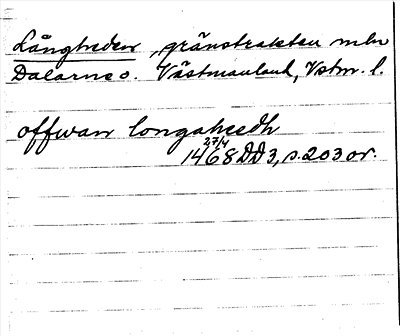 Långheden, gränstrakten mln
Dalarne o. Västmanland, Vstm. l.
offwan longaheedh
27/4
1468 DD3, s. 203 or.